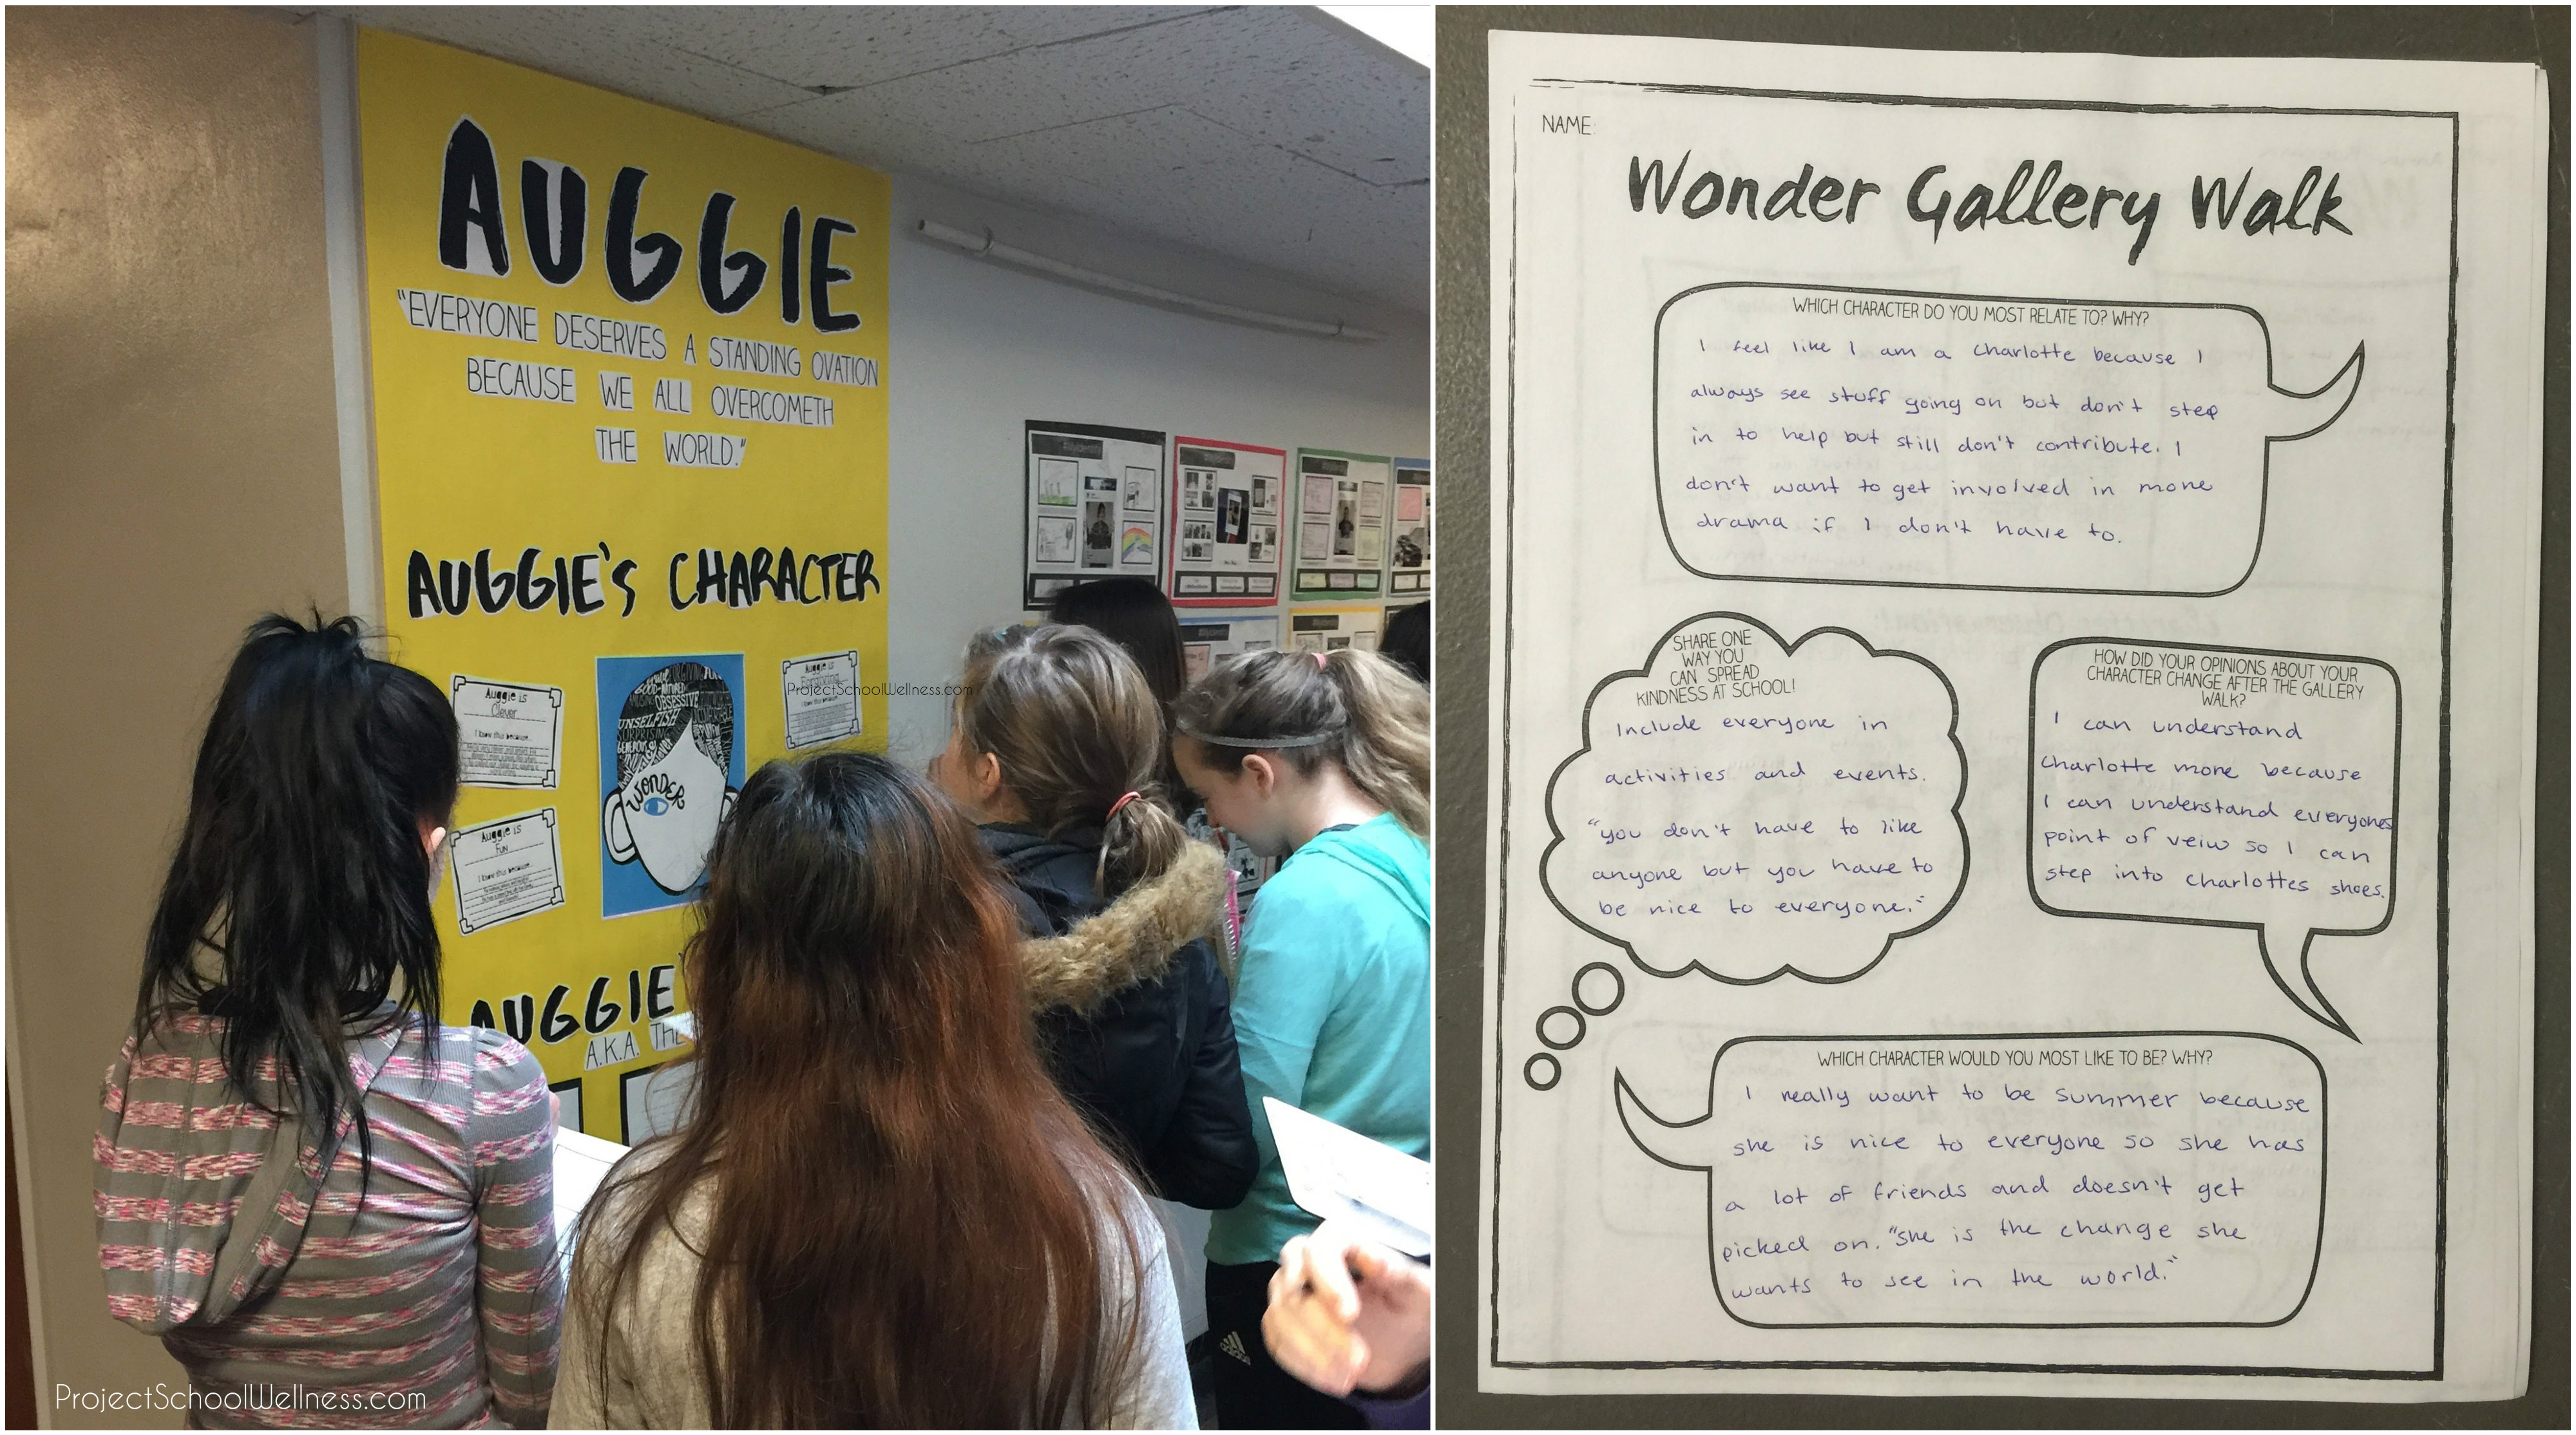 AUGGIE
"EVERYONE DESERVES A STANDING OVATION
BECAUSE WE ALL OVERCOMETH
THE WORLD."
AUGGIE'S CHARACTER
Auggie is
Clever
I know this because...
Auggie is
Fun
I know this because...
UNSELFISH
SURPRISING
OBSESSIVE
WONDER
Auggie is
ProjectSchoolWellness.com
I know this because
AUGGIE'
A.K.A. THE
ProjectSchoolWellness.com
NAME:
Wonder Gallery Walk
WHICH CHARACTER DO YOU MOST RELATE TO? WHY?
I feel like I am a charlotte because I
always see stuff going on but don't step
in to help but still don't contribute. I
don't want to get involved in more
drama if I don't have to.
SHARE ONE
WAY YOU
CAN SPREAD
KINDNESS AT SCHOOL!
Include everyone in
activities and events.
"you don't have to like
anyone but you have to
be nice to everyone."
HOW DID YOUR OPINIONS ABOUT YOUR
CHARACTER CHANGE AFTER THE GALLERY
WALK?
I can understand
charlotte more because
I can understand everyones
point of veiw so I can
step into charlottes shoes.
WHICH CHARACTER WOULD YOU MOST LIKE TO BE? WHY?
I really want to be summer because
she is nice to everyone so she has
a lot of friends and doesn't get
picked on. "she is the change she
wants to see in the world."